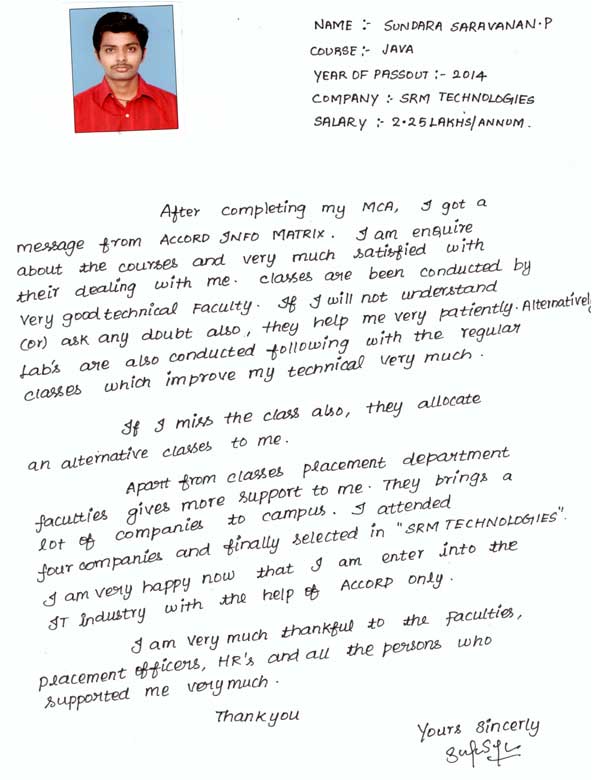 NAME :- SUNDARA SARAVANAN.P
COURSE :- JAVA
YEAR OF PASSOUT :- 2014
COMPANY :- SRM TECHNOLOGIES
SALARY :- 2.25 LAKHS/ANNUM.
After completing my MCA, I got a
message from ACCORD INFO MATRIX. I am enquire
about the courses and very much satisfied with
their dealing with me. classes are been conducted by
very good technical Faculty. If I will not understand
(or) ask any doubt also, they help me very patiently. Alternatively
Lab's are also conducted following with the regular
classes which improve my technical very much.
If I miss the class also, they allocate
an alternative classes to me.
Apart from classes placement department
faculties gives more support to me. They brings a
lot of companies to campus. I attended
four companies and finally selected in "SRM TECHNOLOGIES".
I am very happy now that I am enter into the
IT Industry with the help of ACCORD only.
I am very much thankful to the faculties,
placement officers, HR's and all the persons who
supported me very much.
Thank you
Yours Sincerly